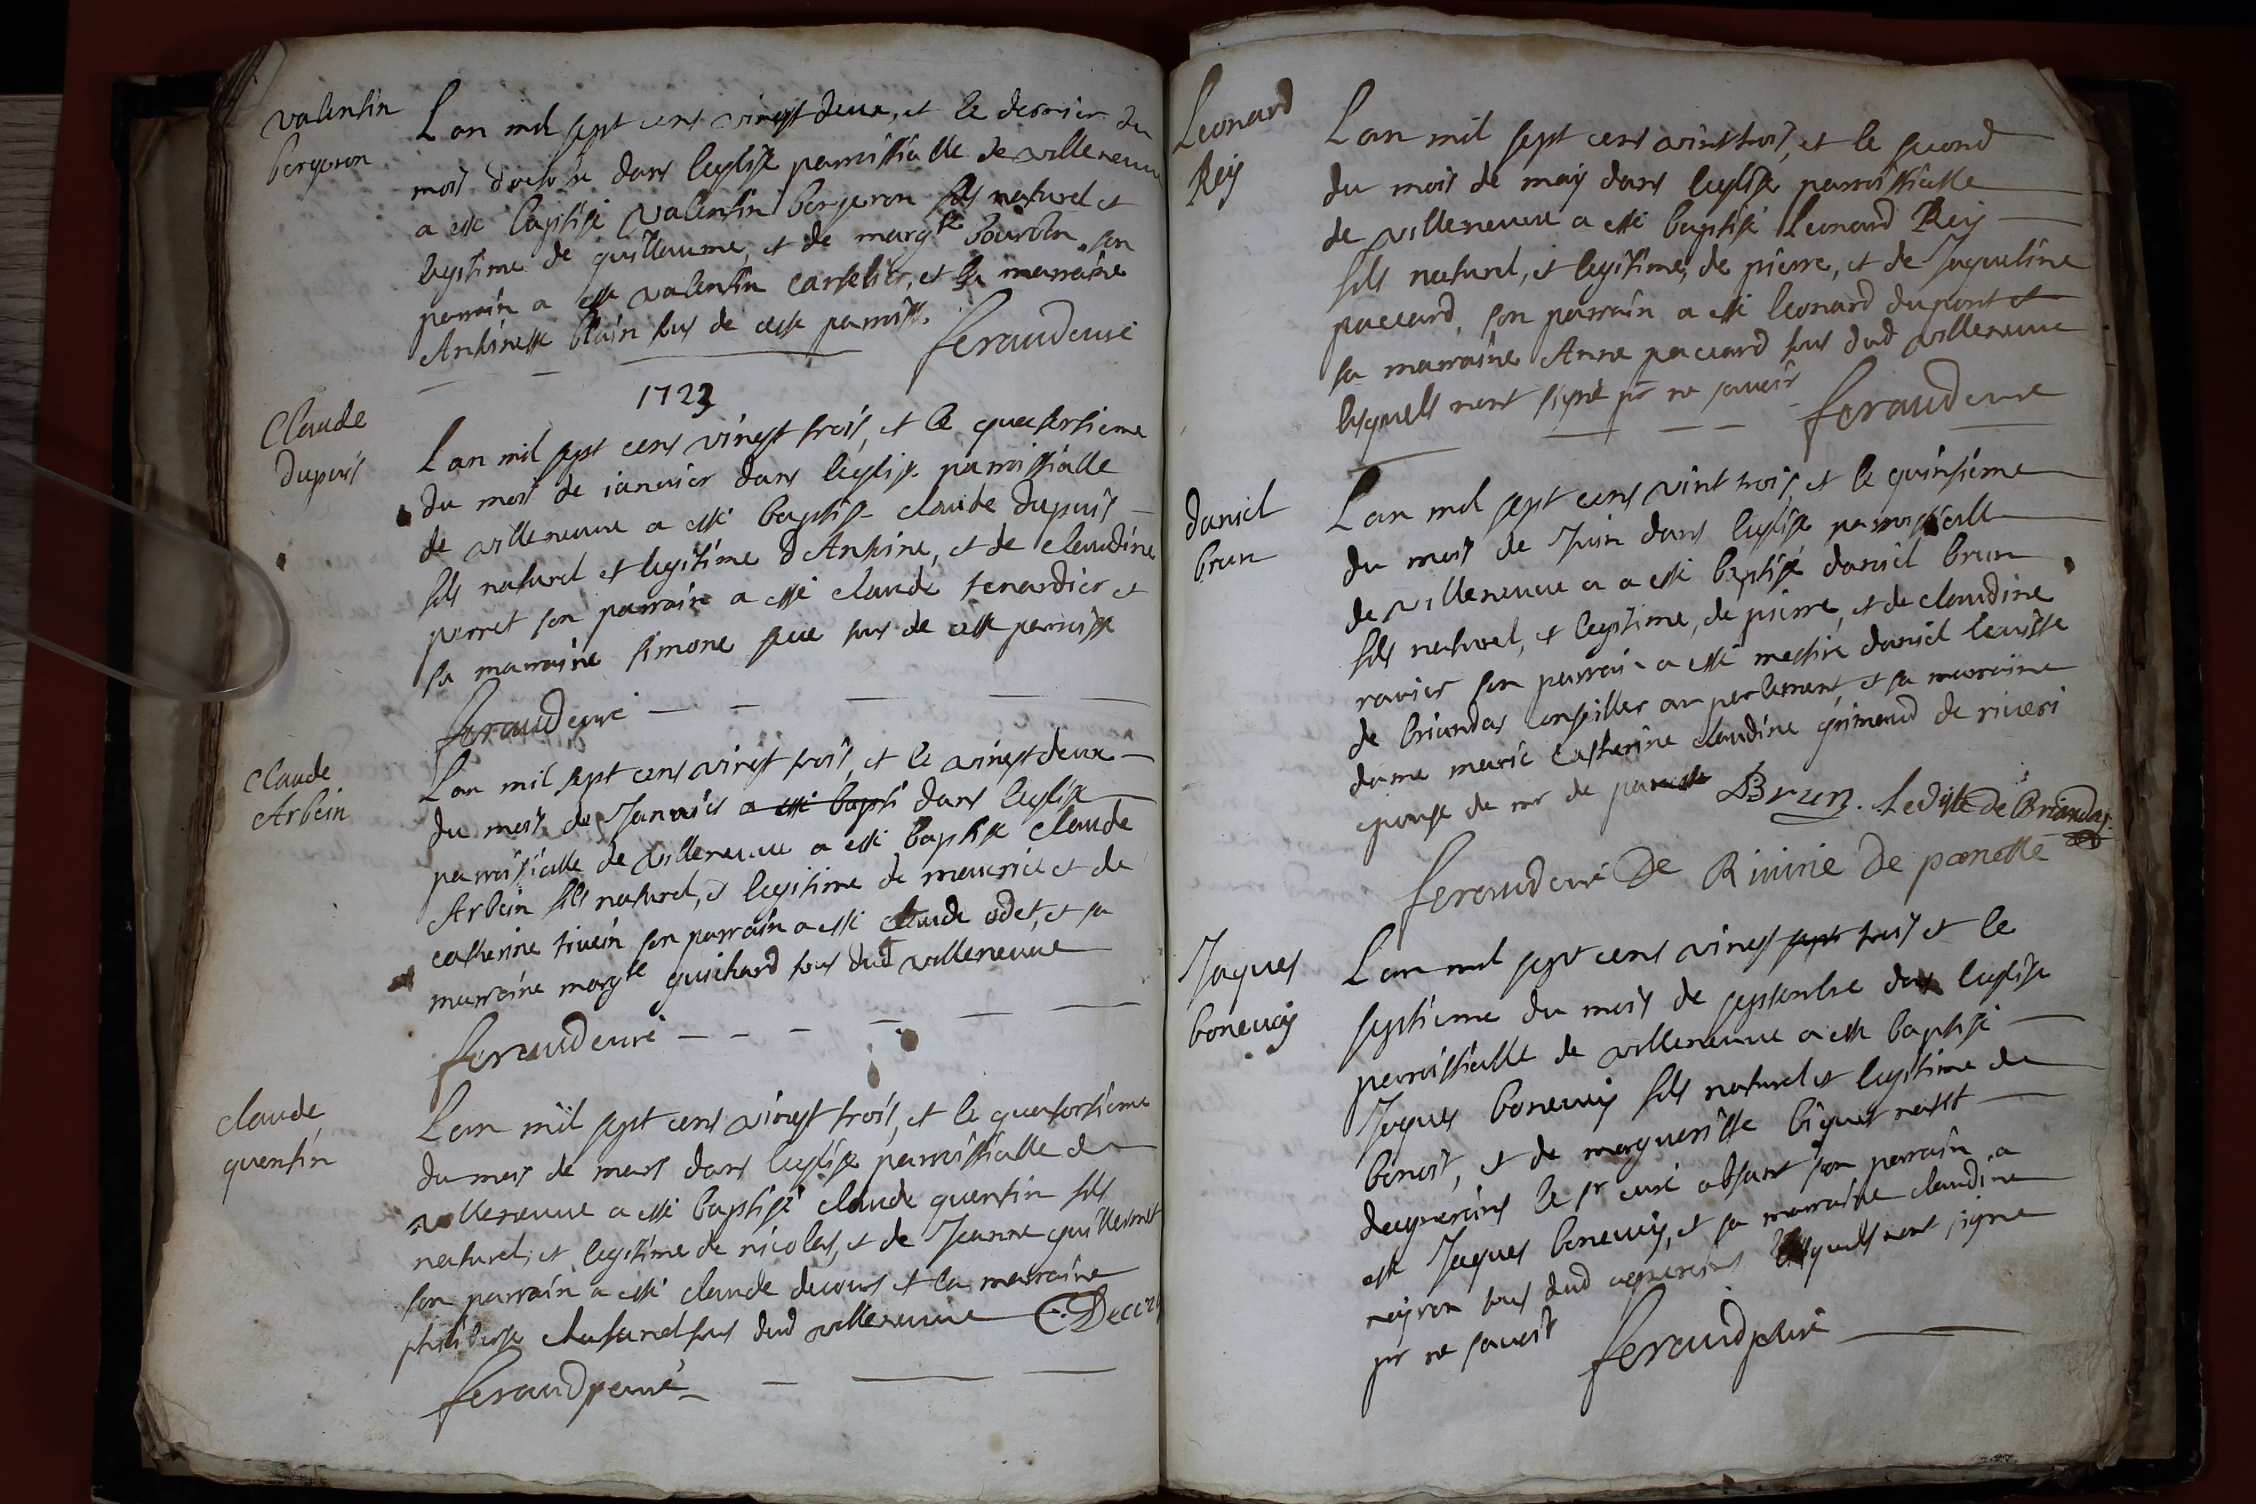 valentin
bergeron
Lan mil sept cens vingt deux, et le dernier du
mois doctobre dans leglise parroissialle de villeneuve
a esté baptisé valentin bergeron fils naturel et
legitime de guillaume, et de margte bourbon son
parrain a esté valentin cartelier, et la marraine
Antoinette blain tous de cette parroisse.
feraud curé
1723
Claude
dupuis
Lan mil sept cens vingt trois, et le quatorsieme
du mois de ianvier dans leglise parroissialle
de villeneuve a esté baptisé claude dupuis
fils naturel et legitime d'Antoine, et de claudine
perret son parrain a esté claude tenardier et
sa marraine simone tous de cette parroisse
feraud curé
claude
Arbein
Lan mil sept cens vingt trois, et le vingt deux
du mois de Janvier a esté bapti dans leglise
parroissialle de villeneuve a esté baptisé claude
Arbein fils naturel, et legitime de maurice et de
catherine tivein son parrain a esté claude odet, et sa
marraine margte guichard tous dud villeneuve
feraud curé
claude
quentin
Lan mil sept cens vingt trois, et le quatorsieme
du mois de mars dans leglise parroissialle de
villeneuve a esté baptisé claude quentin fils
naturel, et legitime de nicolas, et de Jeanne guillermet
son parrain a esté claude decours et la marraine
philiberte chatanel tous dud villeneuve C. Decou
feraud curé
Leonard
Rey
Lan mil sept cens vint trois, et le second
du mois de may dans leglise parroissialle
de villeneuve a esté baptisé Leonard Rey
fils naturel, et legitime, de pierre, et de Jaqueline
paccard, son parrain a esté leonard dupont et
sa marraine Anne paccard tous dud villeneuve
lesquells nont signé pr ne scavoir
feraud curé
daniel
brun
Lan mil sept cens vint trois, et le quinsieme
du mois de Juin dans leglise parroissialle
de villeneuve a a esté baptisé daniel brun
fils naturel, et legitime, de pierre, et de claudine
ravier son parrain a esté messire daniel leviste
de briandas conseiller au parlement, et sa marraine
dame marie catherine claudine grimaud de riveri
epouse de mr de panette Brun. Leviste de Briandas
feraud curé De Rivirie De panette
Jaques
bonevay
Lan mil sept cens vingt sept trois et le
septieme du mois de septembre dans leglise
parroissialle de villeneuve a esté baptisé
Jaques bonevay fils naturel et legitime de
benoit, et de margueritte biquet
dagnereins le sr curé absant son parrain a
esté Jaques bonevay, et sa marraine claudine
neyron tous dud agnereins lesquells nont signé
pr ne scavoir
feraud curé